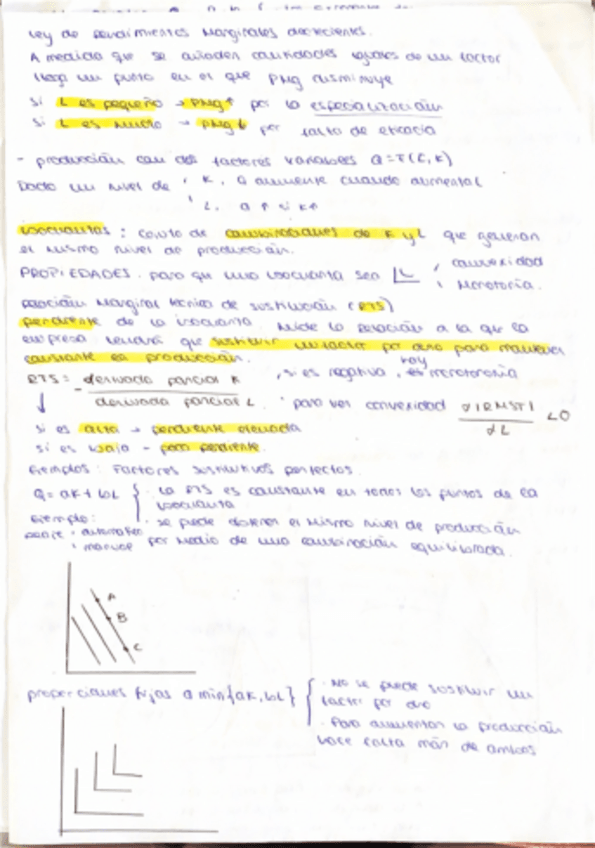 Ley de rendimientos marginales decrecientes.
A medida que se añaden cantidades iguales de un factor
llega un punto en el que PMg disminuye
Si L es pequeño → PMg↑ por la especialización
Si L es mucho → PMg↓ por falta de eficacia
- producción con dos factores variables Q=F(L,K)
Dado un nivel de K, Q aumente cuando aumenta L
L, Q ↑ si K↑
isocuantas: cjunto de combinaciones de K y L que generan
el mismo nivel de producción.
PROPIEDADES. para que una isocuanta sea convexidad
monotonía.
Relación marginal técnica de sustitución (RTS)
pendiente de la isocuanta. Mide la relación a la que la
empresa tendrá que sustituir un factor por otro para mantener
constante la producción.
RTS = - derivada parcial K , si es negativa, hay monotonía
derivada parcial L . para ver convexidad d|RMST| <0
dL
si es alta → pendiente elevada
si es baja - poca pendiente.
Ejemplos: Factores sustitutivos perfectos.
Q= aK+bL { . La RTS es constante en todos los puntos de la
isocuanta
Ejemplo: . se puede obtener el mismo nivel de producción
automático por medio de una combinación equilibrada.
manual
A
B
C
proporciones fijas Q min{aK, bL} { . No se puede sustituir un
factor por otro
. Para aumentar la producción
hace falta más de ambos